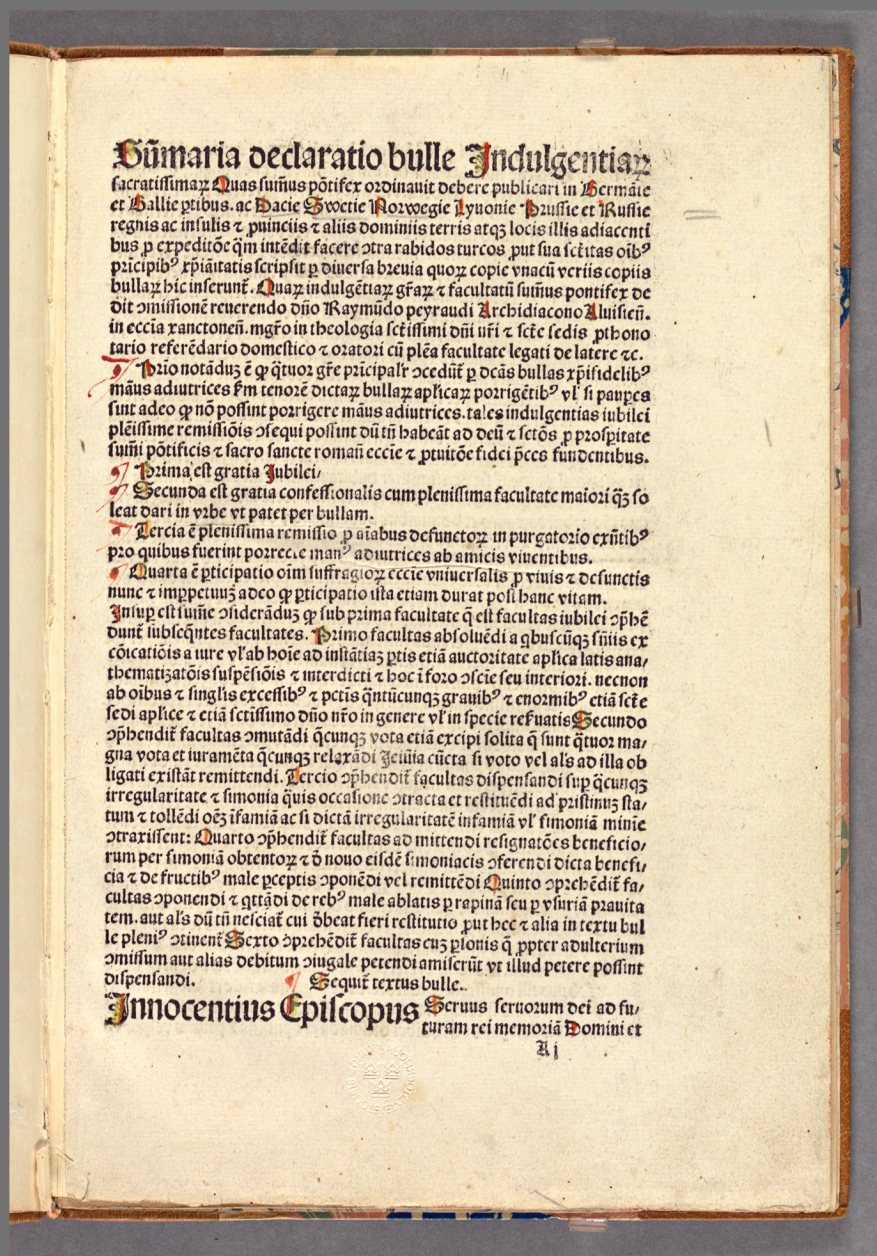 Sūmaria declaratio bulle Indulgentiaꝝ
sacratissimaꝝ Quas sum̄us pōtifex ordinauit debere publicari in Germāie
et Gallie ꝑtibus. ac Dacie Swetie Norwegie Lyuonie Prussie et Russie
regnis ac insulis ⁊ ꝓuinciis ⁊ aliis dominiis terris atqꝫ locis illis adiacenti
bus ꝓ expeditōe q̄m intēdit facere ↄtra rabidos turcos ꝓut sua sct̄itas oīb⁹
prīcipib⁹ xp̄iāitatis scripsit ꝑ diuersa breuia quoꝝ copie vnacū veriis copiis
bullaꝝ hic inserunt̄. Quaꝝ indulgētiaꝝ gr̄aꝝ ⁊ facultatū sum̄us pontifex de
dit ↄmissionē reuerendo dn̄o Raymūdo peyraudi Archidiacono Aluisien̄.
in eccīa xanctonen̄. mgr̄o in theologia sct̄issimi dn̄i nr̄i ⁊ sct̄e sedis ꝓthono
tario referēdario domestico ⁊ oratori cū plēa facultate legati de latere ⁊c.
¶ Prīo notāduꝫ ē ꝙ q̄tuor gr̄e prīcipalr̄ ↄcedūt̄ ꝑ dc̄as bullas xp̄ifidelib⁹
māus adiutrices ẜm tenorē dictaꝝ bullaꝝ apl̄icaꝝ porrigētib⁹ vl̄ si pauꝑes
sint adeo ꝙ nō possint porrigere māus adiutrices. tales indulgentias iubilei
plēissime remissiōis ↄsequi possint dū tn̄ habeāt ad deū ⁊ sctōs ꝓ prosꝑitate
sum̄i pōtificis ⁊ sacro sancte roman̄ eccīe ⁊ ꝓtuitōe fidei p̄ces fundentibus.
¶ Prima est gratia Jubilei/
¶ Secunda est gratia confessionalis cum plenissima facultate maiori q̄ꝫ so
leat dari in vrbe vt patet per bullam.
¶ Tercia ē plenissima remissio ꝓ aīabus defunctoꝝ in purgatorio exn̄tib⁹
pro quibus fuerint porrecte man⁹ adiutrices ab amicis viuentibus.
¶ Quarta ē ꝑticipatio oīm suffragioꝝ eccīe vniuersalis ꝓ viuis ⁊ defunctis
nunc ⁊ imꝑpetuuꝫ adeo ꝙ ꝑticipatio ista etiam durat post hanc vitam.
Insuꝑ est sum̄e ↄsiderāduꝫ ꝙ sub prima facultate q̄ est facultas iubilei ↄp̄hē
dunt̄ subseq̄ntes facultates. Primo facultas absoluēdi a qbuscūqꝫ sn̄iis ex
cōicatiōis a iure vl̄ ab hoīe ad instātiaꝫ ꝑtis etiā auctoritate apl̄ica latis ana/
thematizatōis suspēsiōis ⁊ interdicti ⁊ hoc ī foro ↄscīe seu interiori. necnon
ab oībus ⁊ singlis excessib⁹ ⁊ pctīs q̄ntūcunqꝫ grauib⁹ ⁊ enormib⁹ etiā sct̄e
sedi apl̄ice ⁊ etiā sctīssimo dn̄o nr̄o in genere vl̄ in specie reẜuatis Secundo
ↄp̄hendit̄ facultas ↄmutādi q̄cunqꝫ vota etiā excipi solita q̄ sunt q̄tuor ma/
gna vota et iuramēta q̄cunqꝫ relaxādi Jeiūia cūcta si voto vel al̄s ad illa ob
ligati existāt remittendi. Tercio ↄp̄hendit̄ facultas dispensandi suꝑ q̄cunqꝫ
irregularitate ⁊ simonia q̄uis occasione ↄtracta et restituēdi ad pristinuꝫ sta/
tum ⁊ tollēdi oēꝫ īfamiā ac si dictā irregularitatē infamiā vl̄ simoniā minīe
ↄtraxissent: Quarto ↄp̄hendit̄ facultas ad mittendi resignatōes beneficio/
rum per simoniā obtentoꝝ ⁊ ꝺ̄ nouo eisdē simoniacis ↄferendi dicta benefi/
cia ⁊ de fructib⁹ male ꝑceptis ↄponēdi vel remittēdi Quinto ↄprehēdit̄ fa/
cultas ↄponendi ⁊ qttādi de reb⁹ male ablatis ꝑ rapinā seu ꝑ vsuriā prauita
tem. aut al̄s dū tn̄ nesciat̄ cui ꝺ̄beat fieri restitutio ꝓut hec ⁊ alia in textu bul
le pleni⁹ ↄtinent̄ Sexto ↄprehēdit̄ facultas cuꝫ ꝑsonis q̄ ꝓpter adulterium
ↄmissum aut alias debitum ↄiugale petendi amiserūt vt illud petere possint
dispensandi. ¶ Sequit̄ textus bulle.
Innocentius Episcopus Seruus seruorum dei ad fu/
turam rei memoriā Domini et
A j